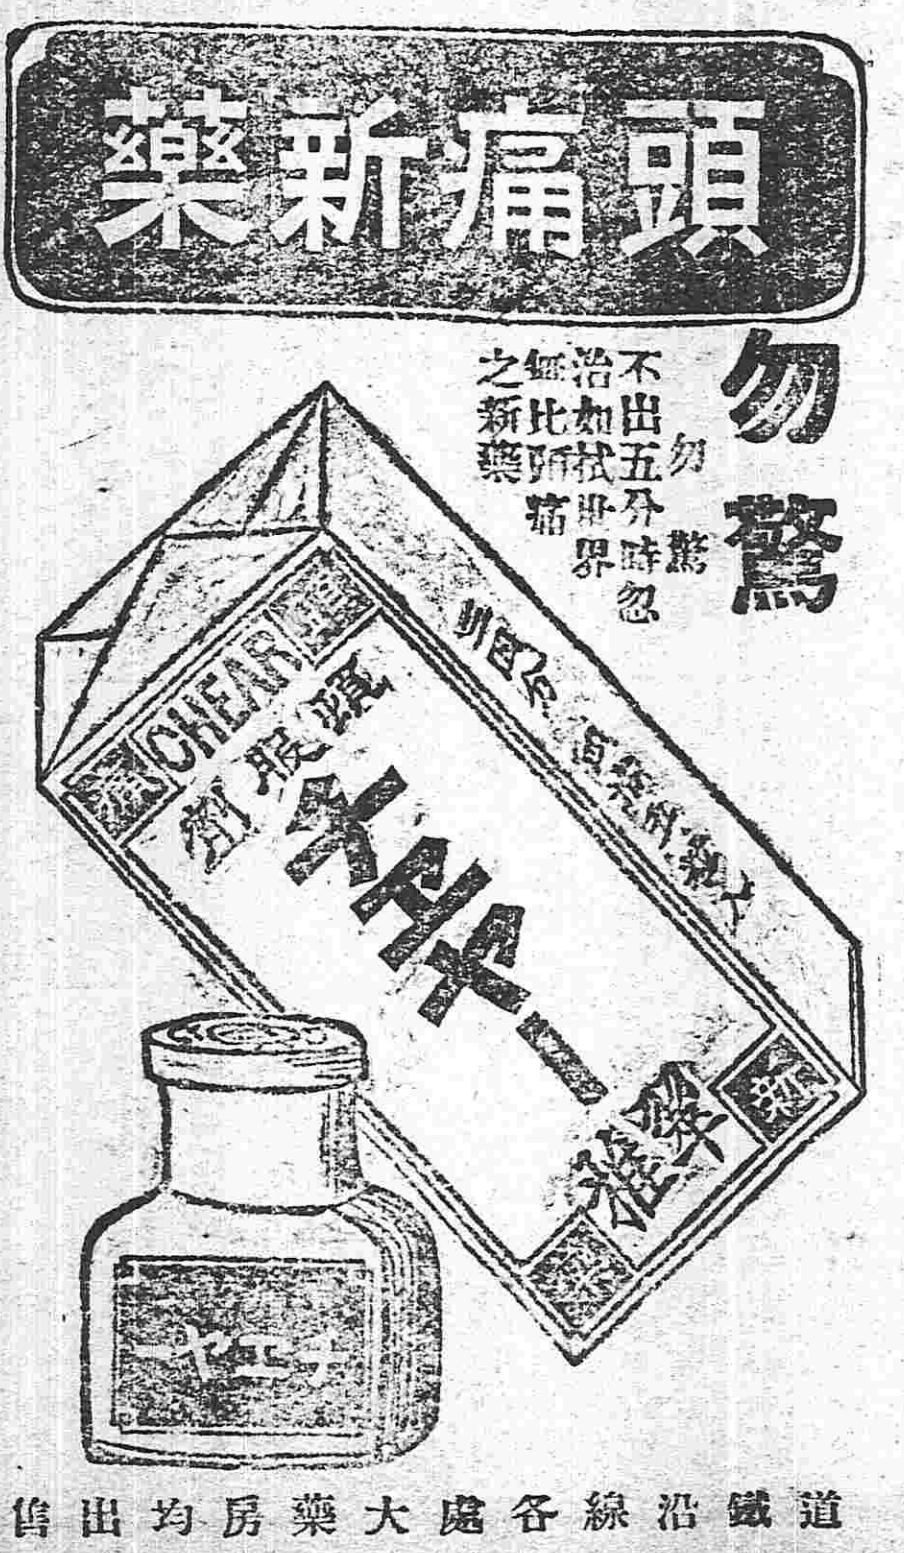 頭痛新藥
勿驚
勿驚
不出五分時忽
治如拭世界
無比頭痛
之新藥
頭
CHEAR
痛
頭服劑
チエヤー
新
藥
チエヤー
道鐵沿線各處大藥房均出售